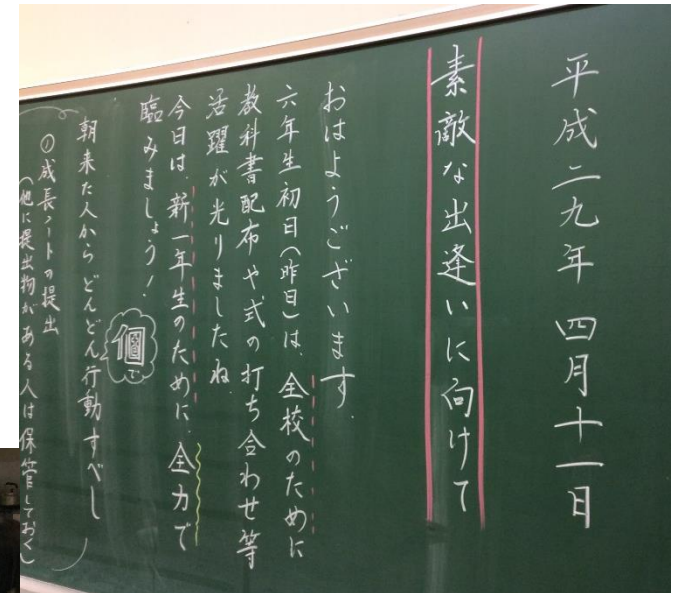 平成二九年 四月十一日
素敵な出逢いに向けて
おはようございます.
六年生初日(昨日)は、全校のために
教科書配布や式の打ち合わせ等
活躍が光りましたね.
今日は、新一年生のために、全力で
臨みましょう!
個で
朝来た人から どんどん行動すべし
①成長ノートの提出
(他に提出物がある人は保管しておく)